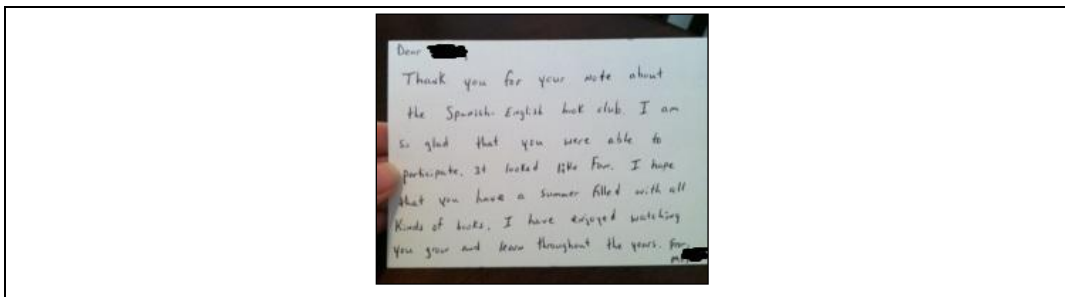 Dear
Thank you for your note about
the Spanish-English book club. I am
so glad that you were able to
participate. It looked like fun. I hope
that you have a summer filled with all
Kinds of books. I have enjoyed watching
you grow and learn throughout the years.